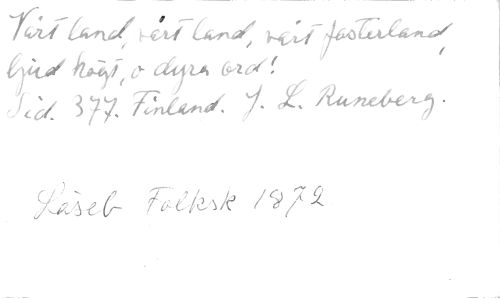 Vårt land, vårt land, vårt fosterland,
ljud högt, o dyra ord!
Sid. 377. Finland. J. L. Runeberg.
Läseb Folksk 1872